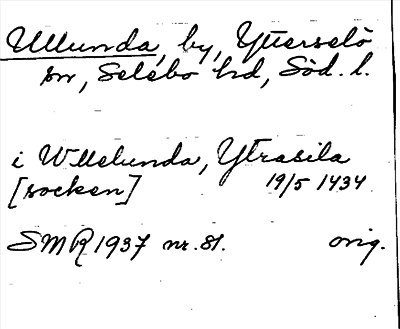 Ullunda, by, Ytterselö
sn, Selebo hd, Söd. l.
i Wllelunda, Ytrasila
[socken] 19/5 1434
SMR 1937 nr. 81. orig.